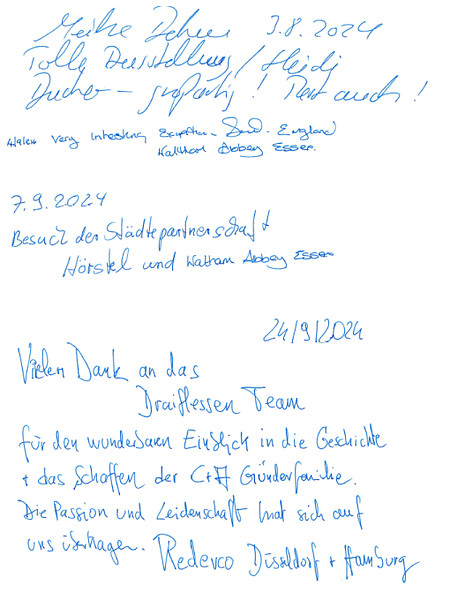 Meike 3.8.2024
Tolle Ausstellung / Heidi
Bucher – großartig ! Rest auch !
Very Interesting England
Waltham Abbey Essex.
7.9.2024
Besuch der Städtepartnerschaft
Hörstel und Waltham Abbey Essex
24/9/2024
Vielen Dank an das
Draiflessen Team
für den wunderbaren Einblick in die Geschichte
+ das Schaffen der C+A Gründerfamilie.
Die Passion und Leidenschaft hat sich auf
uns übertragen. Redevco Düsseldorf + Hamburg